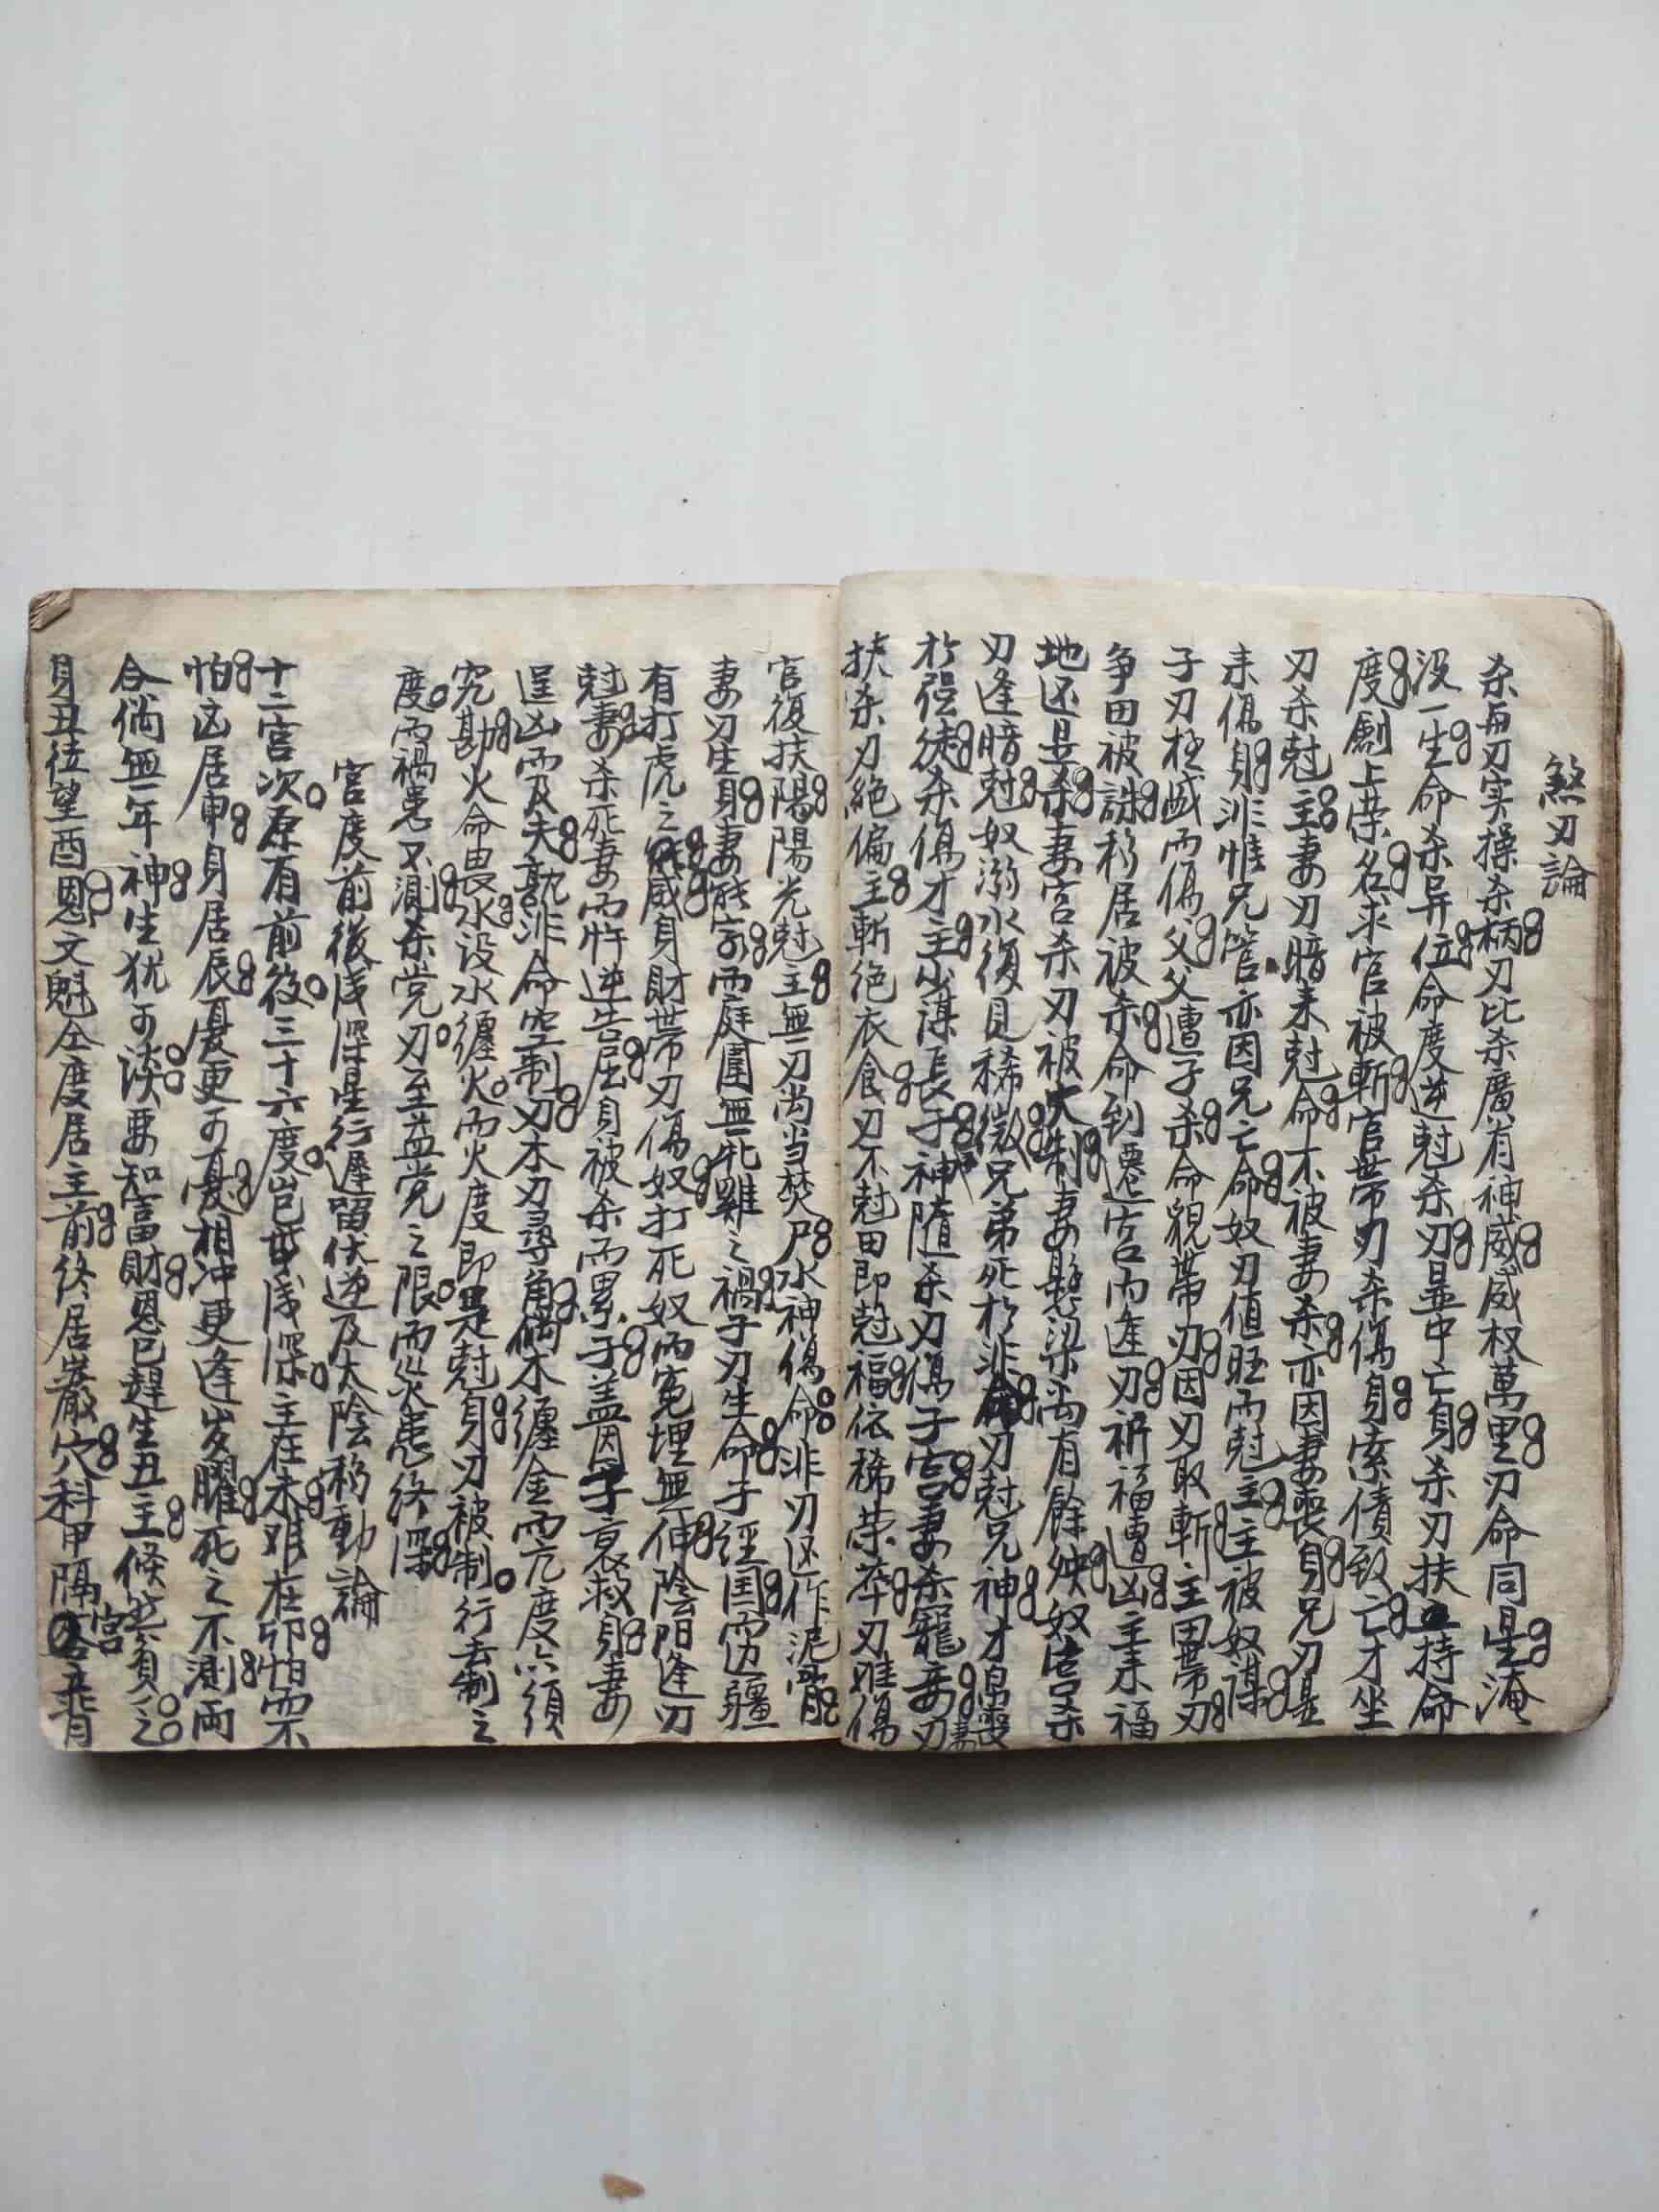 煞刃論
杀与刃实操杀柄刃比杀廣有神威威权萬里刃命同星淹
没一生命杀异位命度逆尅杀刃並中亡身杀刃扶持命
度劊上荣名求官被斬官带刃杀傷身索债致亡才坐
刃杀尅主妻刃暗来尅命不被妻杀亦因妻喪身兄刃是
来傷身非惟兄管亦因兄亡命奴刃值旺而尅主主被奴謀
子刃旺戚而傷父父遭子杀命貌带刃因刃取斬主田带刃
争田被誅移居被杀命到遷宫内逢刃祈福遭凶主来福
地还是杀妻宫杀刃被大制妻懸梁尚有餘殃奴宫杀
刃逢暗尅奴溺水復見稀微兄弟死於非命刃尅兄神才帛喪
於强徒杀傷才主出謀長子神隨杀刃傷子宫妻杀寵妾刃
扶杀刃絶偏主斬绝衣食刃不尅田即尅福依稀荣華刃唯傷
官復扶陽陽光尅主無刃尚当焚尸水神傷命非刃凶作泥
妻刃生身妻能家而庭闱無牝雞之禍子刃生命子經国而边疆
有打虎之威身財带刃傷奴打死奴而冤埋無伸陰阳逢刃
尅妻杀死妻而忤逆告屈身被杀而累子盖因子衰救身妻
逞凶而及夫孰非命空制刃木刃尋角倘木纏金而亢度亦須
究勘火命畏水设水纏火而火度即是尅身刃被制行去制之
度而禍患不測杀党刃至益党之限而災患终深
宫度前後浅深星行遲留伏逆及太陰移動論
十二宫次原有前後三十六度岂无浅深主在未难在卯怕而不
怕凶居申身居辰憂更可憂相冲更逢岁曜死之不測両
合倘無年神生犹可談要知富財恩已趕生丑主候宫貧之
身丑位望酉恩文魁仝度居主前终居巌穴科甲隔